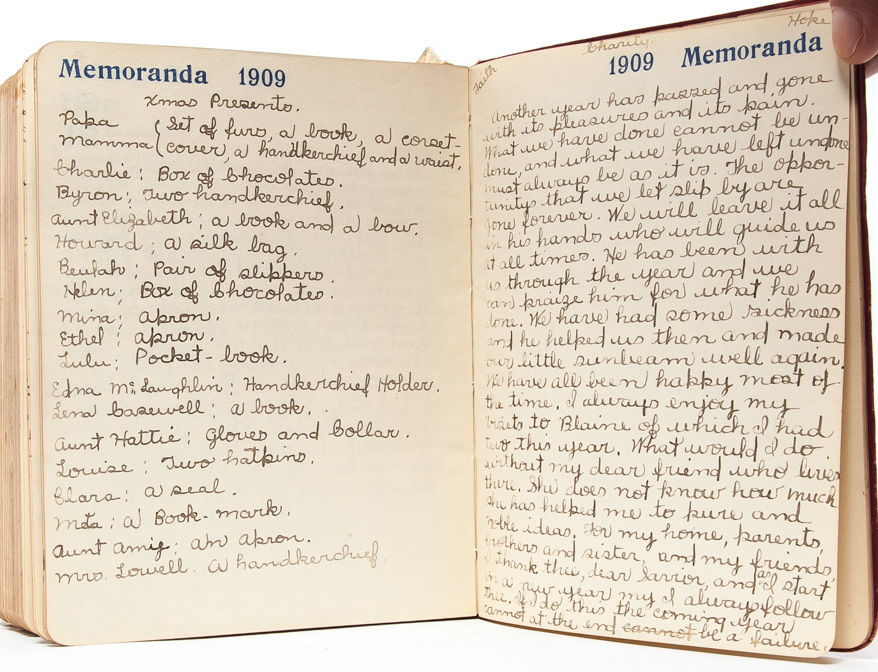 Memoranda 1909
Xmas Presents.
Papa ( Set of furs, a book, a corset-
Mamma ( cover, a handkerchief and a waist.
Charlie; Box of Chocolates.
Byron; Two handkerchief.
Aunt Elizabeth; a book and a bow.
Howard; a silk bag.
Beulah; Pair of slippers.
Helen; Box of Chocolates.
Mina; apron.
Ethel; apron.
Lulu; Pocket-book.
Edna McLaughlin; Handkerchief Holder.
Lena Casewell; a book.
Aunt Hattie; Gloves and Collar.
Louise; Two hatpins.
Clara; a seal.
Meta; a Book-mark.
Aunt Amy; an apron.
Mrs. Lowell. a handkerchief.
Faith Charity. Hope
1909 Memoranda
Another year has passed and gone
with its pleasures and its pain.
What we have done cannot be un-
done, and what we have left undone
must always be as it is. The oppor-
tunitys that we let slip by are
gone forever. We will leave it all
in his hands who will guide us
at all times. He has been with
us through the year and we
can praize him for what he has
done. We have had some sickness
and he helped us then and made
our little sunbeam well again.
We have all been happy most of
the time. I always enjoy my
visits to Blaine of which I had
two this year. What would I do
without my dear friend who lives
there. She does not know how much
she has helped me to pure and
noble ideas. For my home, parents,
brothers and sister, and my friends
I thank thee, dear Savior, and as I start
in a new year may I always follow
Thee. If I do this the coming year
cannot at the end cannot be a failure.